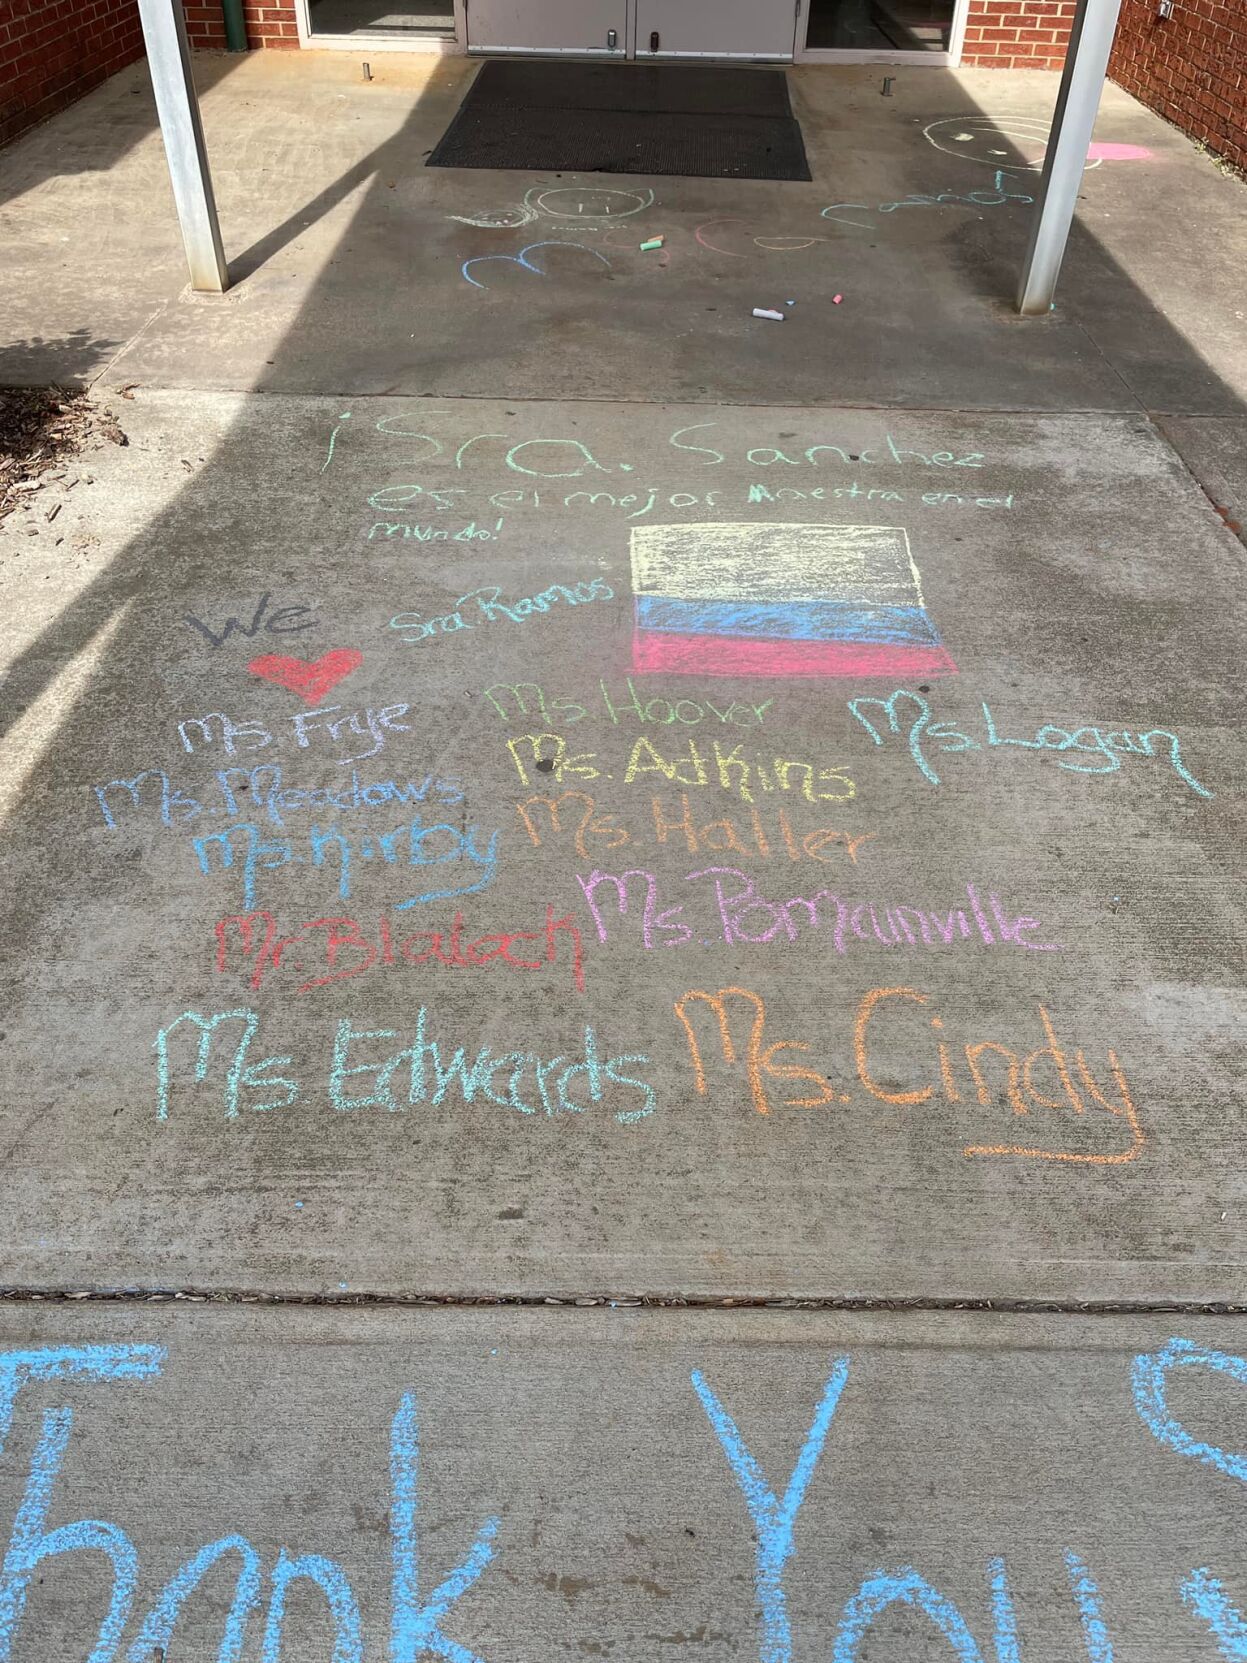 ¡Sra. Sanchez
es el mejor Maestra en el
mundo!
Sra Ramos
We
Ms. Frye
Ms. Hoover
Ms. Logan
Ms. Meadows
Ms. Adkins
Ms. Kirby
Ms. Haller
Mr. Blalock
Ms. Pomainville
Ms. Edwards
Ms. Cindy
Thank You